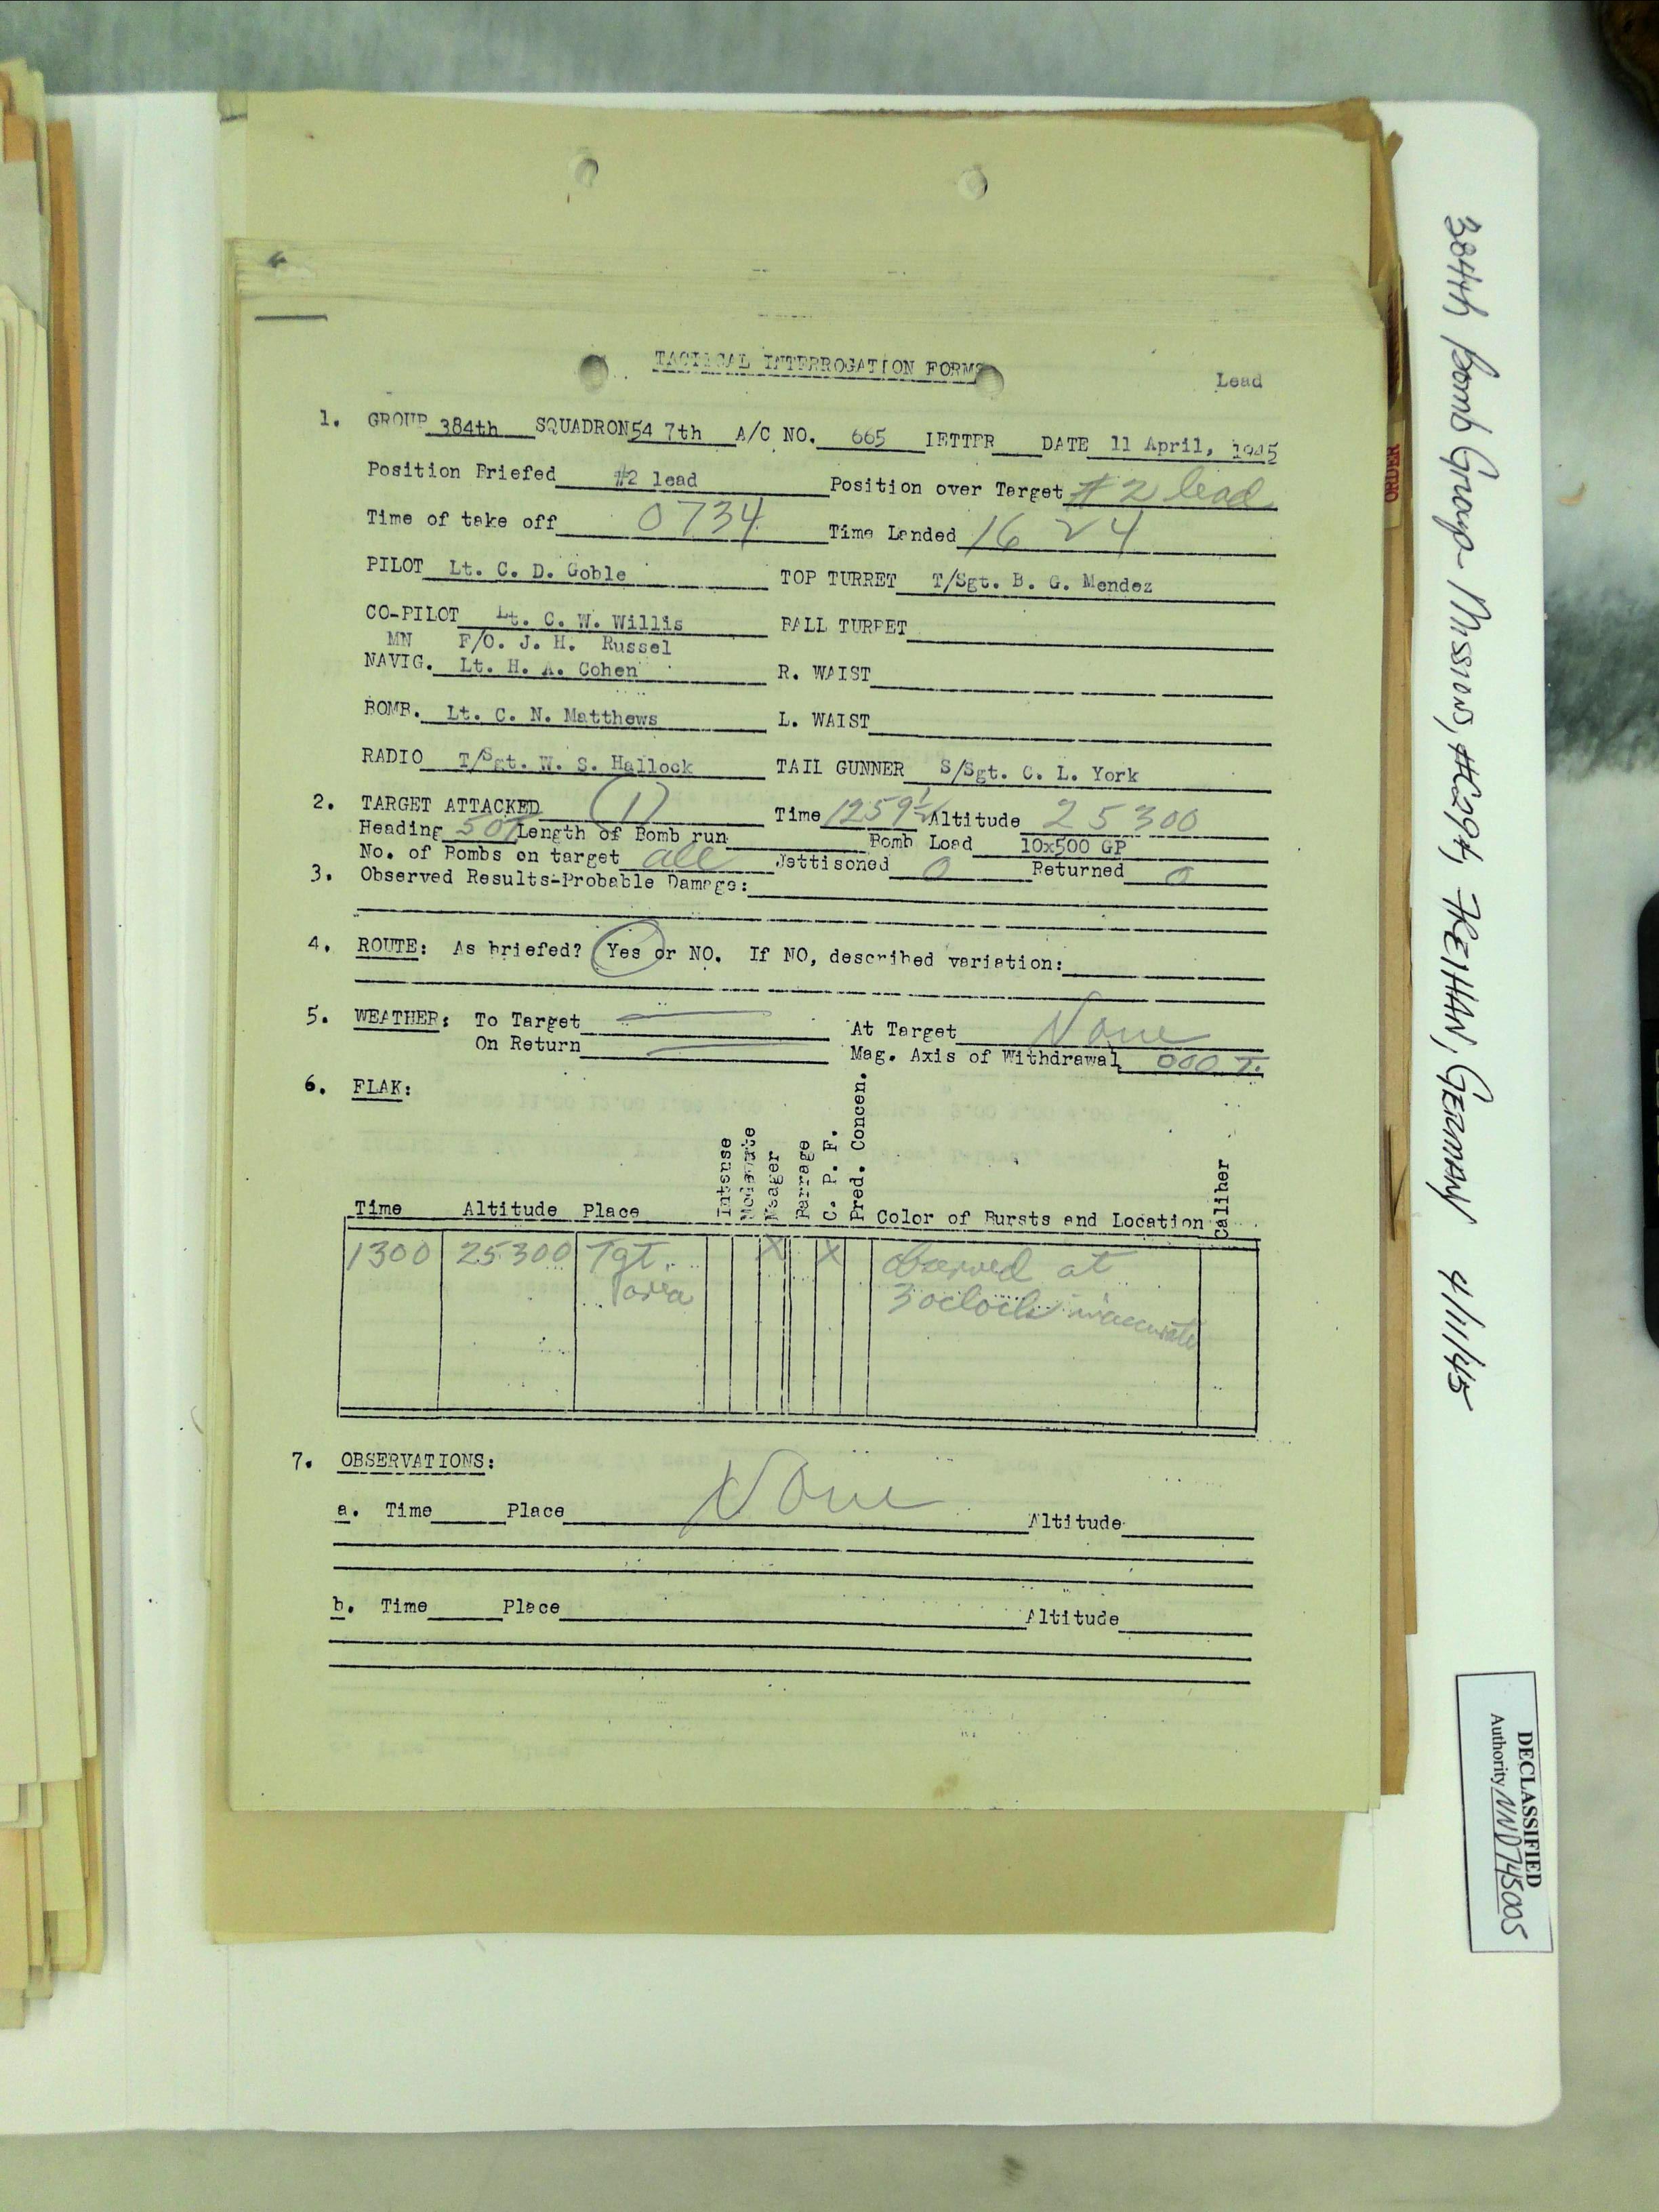 TACTICAL INTERROGATION FORMS
Lead
1. GROUP 384th SQUADRON 547th A/C NO. 665 LETTER DATE 11 April, 1945
Position Briefed #2 lead Position over Target #2 lead
Time of take off 0734 Time Landed 1624
PILOT Lt. C. D. Goble TOP TURRET T/Sgt. B. G. Mendez
CO-PILOT Lt. C. W. Willis BALL TURRET
MN F/O. J. H. Russel
NAVIG. Lt. H. A. Cohen R. WAIST
BOMB. Lt. C. N. Matthews L. WAIST
RADIO T/Sgt. W. S. Hallock TAIL GUNNER S/Sgt. C. L. York
2. TARGET ATTACKED (1) Time 1259½ Altitude 25300
Heading Length of Bomb run Bomb Load 10x500 GP
No. of Bombs on target all Jettisoned 0 Returned 0
3. Observed Results-Probable Damage:
4. ROUTE: As briefed? Yes or NO. If NO, described variation:
5. WEATHER: To Target At Target None
On Return Mag. Axis of Withdrawal 000 T.
6. FLAK:
Time Altitude Place Intense Moderate Meager Barrage C. P. F. Pred. Concen. Color of Bursts and Location Caliber
1300 25300 Tgt. X X observed at
area 3 oclock inaccurate
7. OBSERVATIONS:
None
a. Time Place Altitude
b. Time Place Altitude
384th Bomb Group - Missions, #294, FREIHAN, GERMANY 4/11/45
ORDER
DECLASSIFIED
Authority NND745005